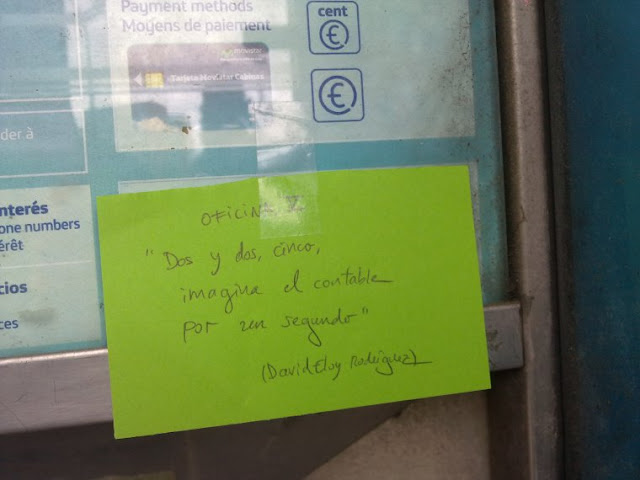 Payment methods
Moyens de paiement
cent
movistar
Tarjeta Movistar Cabinas
der à
nterés
one numbers
érêt
cios
ces
OFICINA V
"Dos y dos, cinco,
imagina el contable
por un segundo"
(David Eloy Rodríguez)